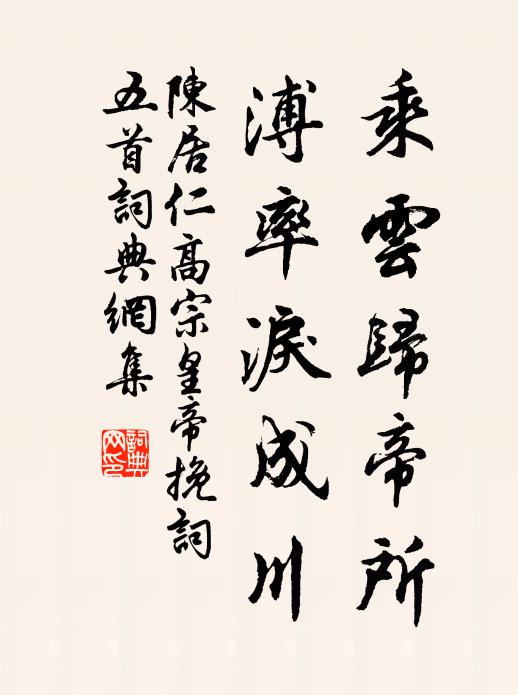 乘雲歸帝所
溥率淚成川
陳居仁高宗皇帝挽詞
五首詞典網集
詞典網印